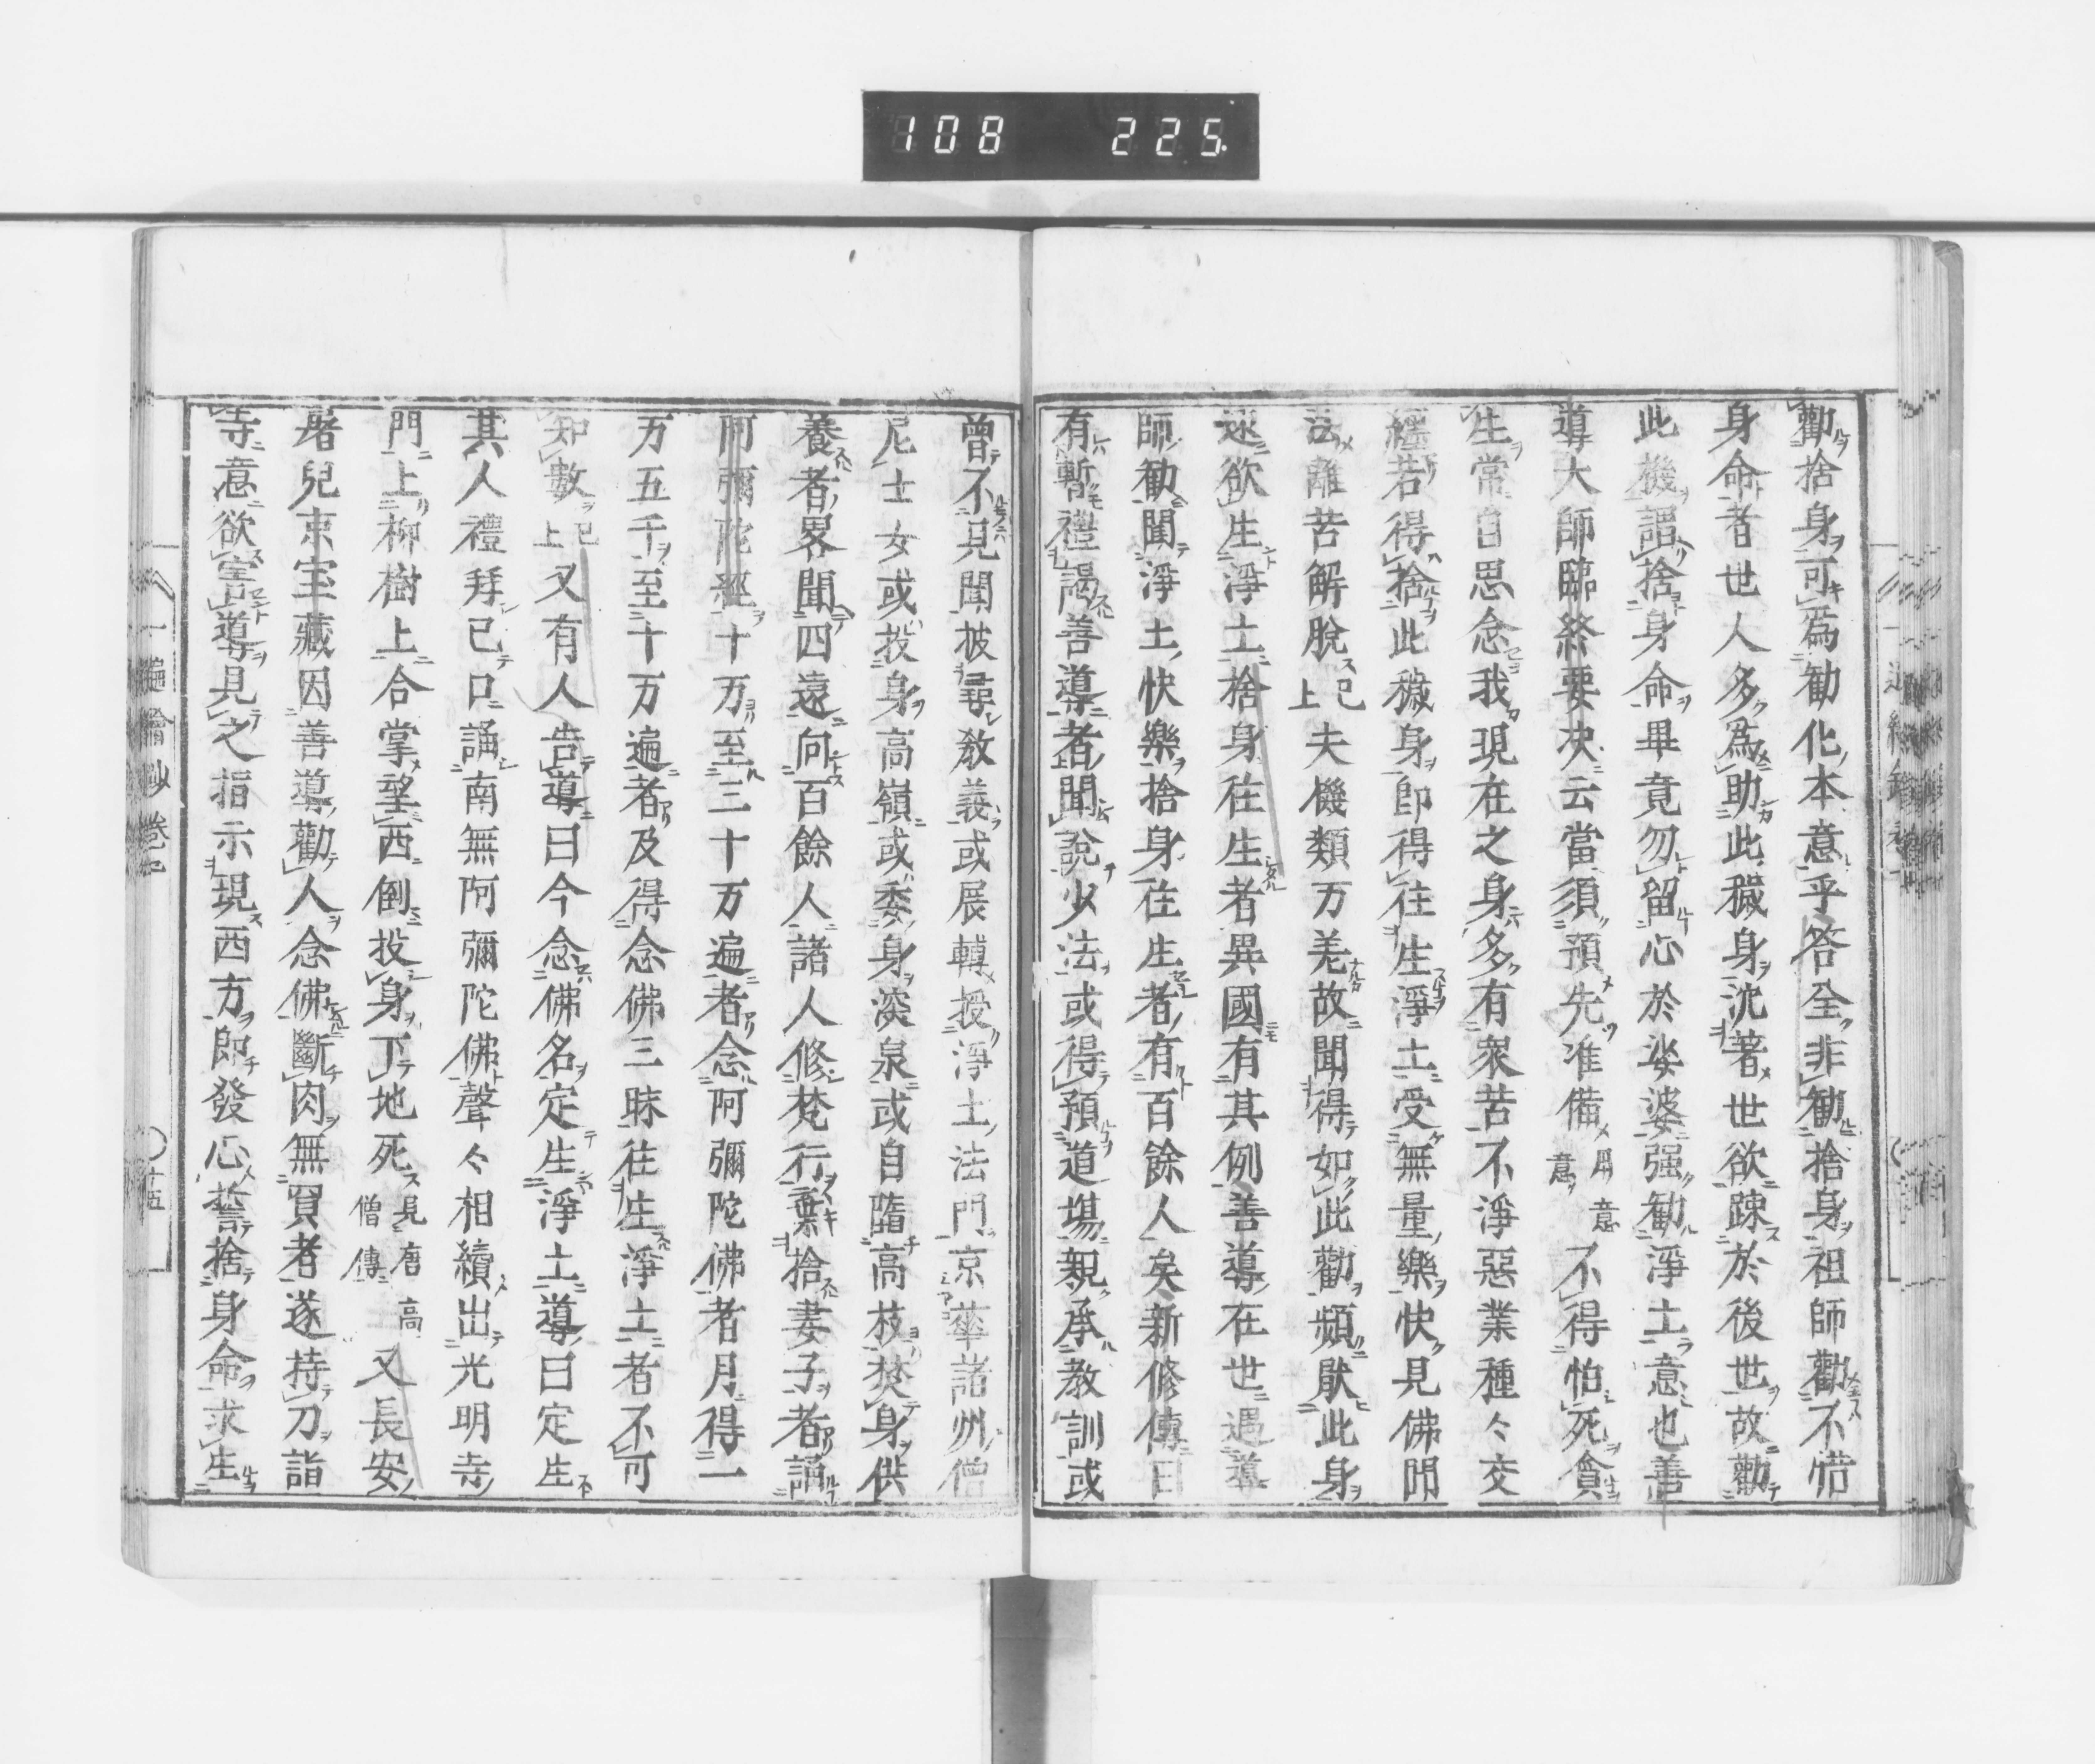 108 225
勸捨身可為勧化本意乎答全非勧捨身祖師勸不惜
身命者世人多為助此穢身沈著世欲踈於後世故勸
此機謂捨身命畢竟勿留心於娑婆强勧淨土意也善
導大師臨終要决云當須預先准備用意意不得怕死貪
生常自思念我現在之身多有衆苦不淨惡業種々交
纒若得捨此穢身即得往生淨土受無量樂快見佛聞
法離苦解脫已上夫機類万差故聞得如此勸頻厭此身
速欲生淨土捨身往生者異國有其例善導在世遇導
師勧聞淨土快樂捨身往生者有百餘人矣新修傳曰
有暫禮謁善導者聞說少法或得預道場親承教訓或
曾不見聞披尋教義或展轉授淨土法門京華諸州僧
尼士女或投身高嶺或委身深泉或自墮高枝焚身供
養者畧聞四遠向百餘人諸人修梵行棄捨妻子者誦
阿彌陀經十万至三十万遍者念阿彌陀佛者月得一
万五千至十万遍者及得念佛三昧往生淨土者不可
知數已上又有人告導曰今念佛名定生淨土導曰定生
其人禮拜已口誦南無阿彌陀佛聲々相續出光明寺
門上柳樹上合掌望西倒投身下地死見唐高僧傳又長安
屠兒京宝藏因善導勸人念佛斷肉無買者遂持刀詣
寺意欲害導見之指示現西方即發心誓捨身命求生
一遍繪鈔卷四
十五